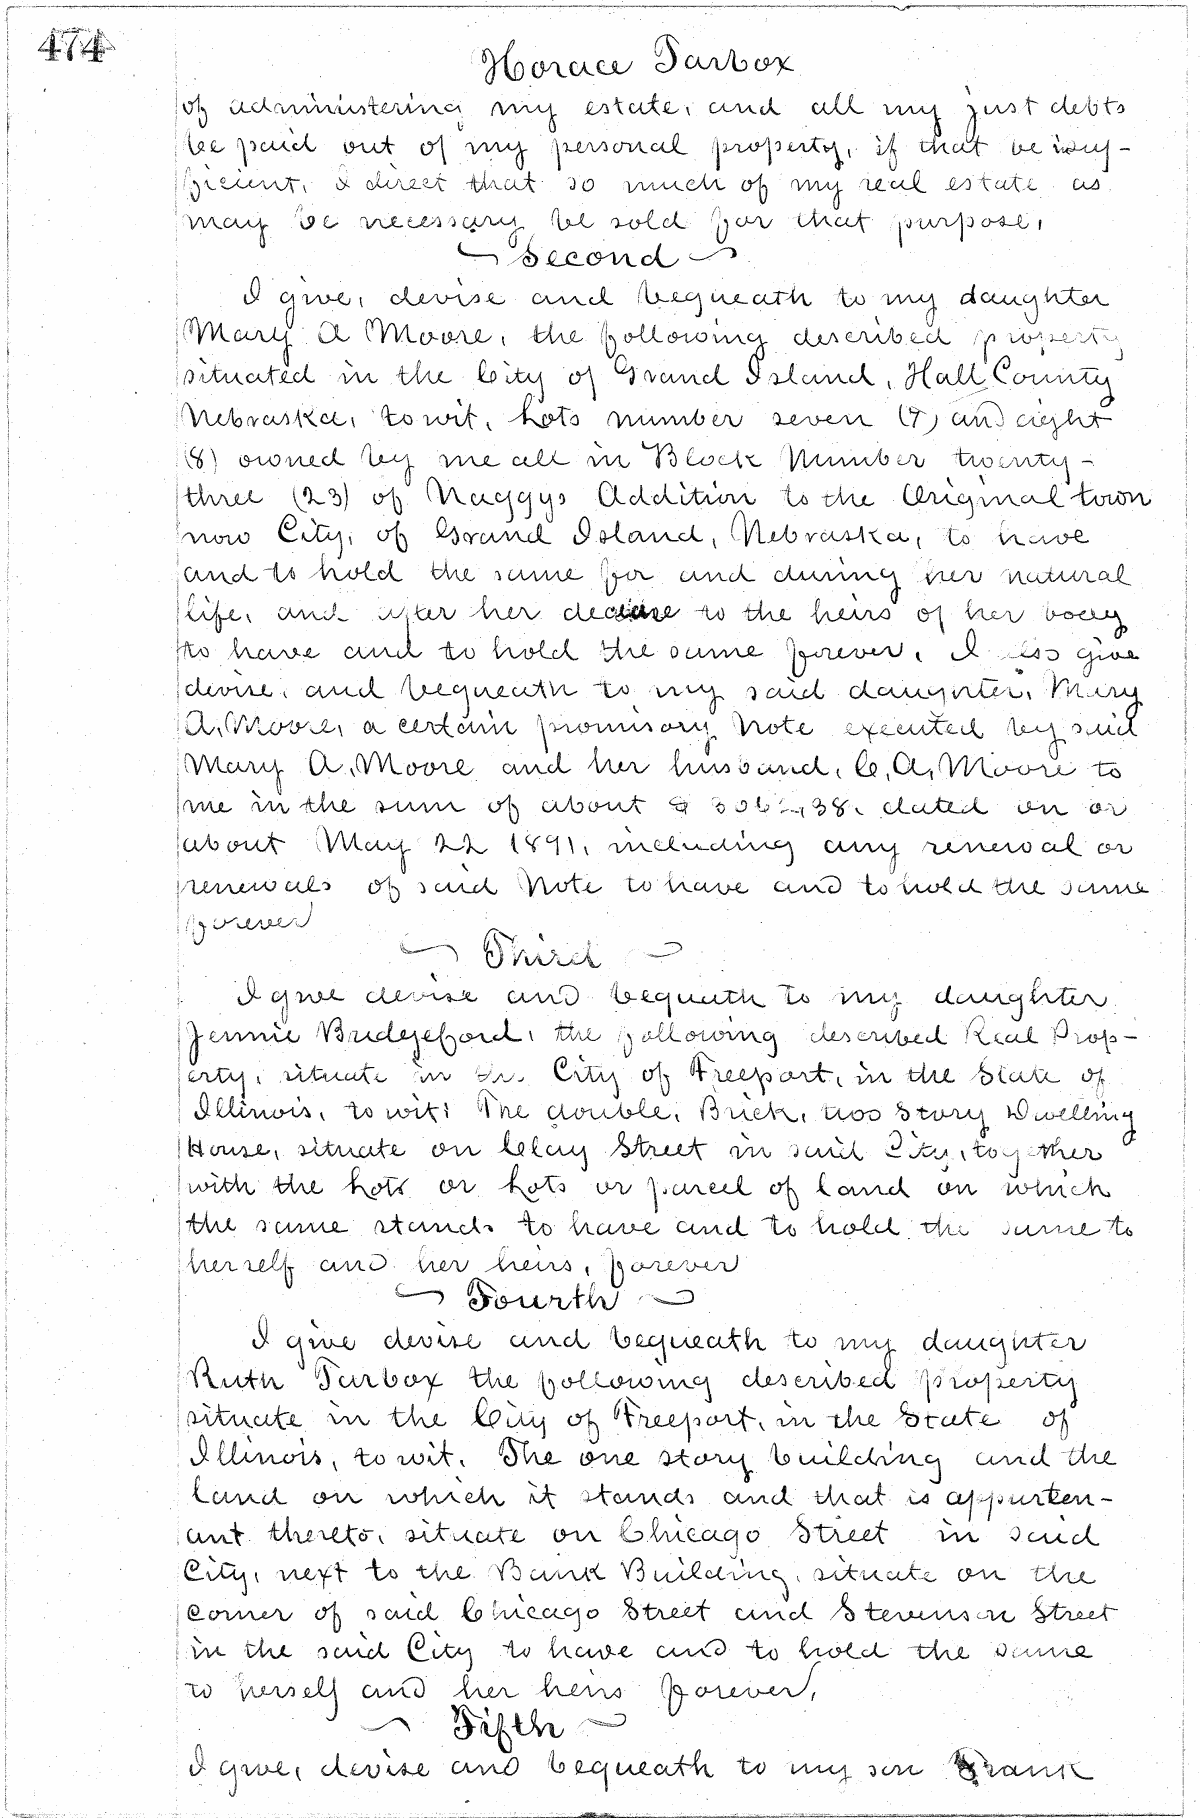 474
Horace Tarbox
of administering my estate, and all my just debts
be paid out of my personal property, if that be insuf-
ficient, I direct that so much of my real estate as
may be necessary be sold for that purpose,
Second
I give, devise and bequeath to my daughter
Mary A Moore, the following described property
situated in the City of Grand Island, Hall County
Nebraska, to wit, Lots number seven (7) and eight
(8) owned by me all in Block Number twenty-
three (23) of Naggys Addition to the Original town
now City, of Grand Island, Nebraska, to have
and to hold the same for and during her natural
life, and after her decease to the heirs of her body
to have and to hold the same forever. I also give
devise, and bequeath to my said daughter, Mary
A. Moore, a certain promisory Note executed by said
Mary A. Moore and her husband, C. A. Moore to
me in the sum of about dated on or
about May 22 1891, including any renewal or
renewals of said Note to have and to hold the same
forever
Third
I give devise and bequeath to my daughter
Jennie Bridgeford, the following described Real Prop-
erty, situate in the City of Freeport, in the State of
Illinois, to wit: The double, Brick, two Story Dwelling
House, situate on Clay Street in said City, together
with the Lots or Lots or parcel of land on which
the same stands to have and to hold the same to
herself and her heirs, forever
Fourth
I give devise and bequeath to my daughter
Ruth Tarbox the following described property
situate in the City of Freeport, in the State of
Illinois, to wit. The one story building and the
land on which it stands and that is appurten-
ant thereto, situate on Chicago Street in said
City, next to the Bank Building, situate on the
corner of said Chicago Street and Stevenson Street
in the said City to have and to hold the same
to herself and her heirs forever,
Fifth
I give, devise and bequeath to my son Frank